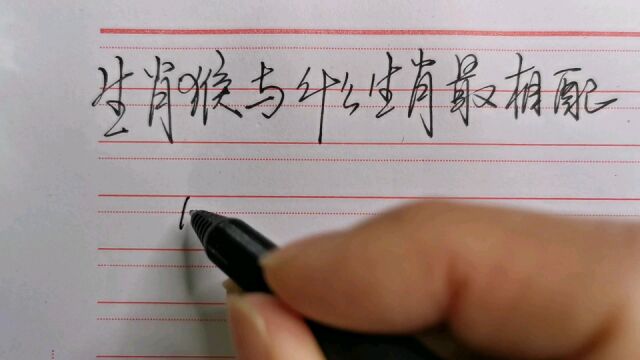 生肖猴与什么生肖最相配